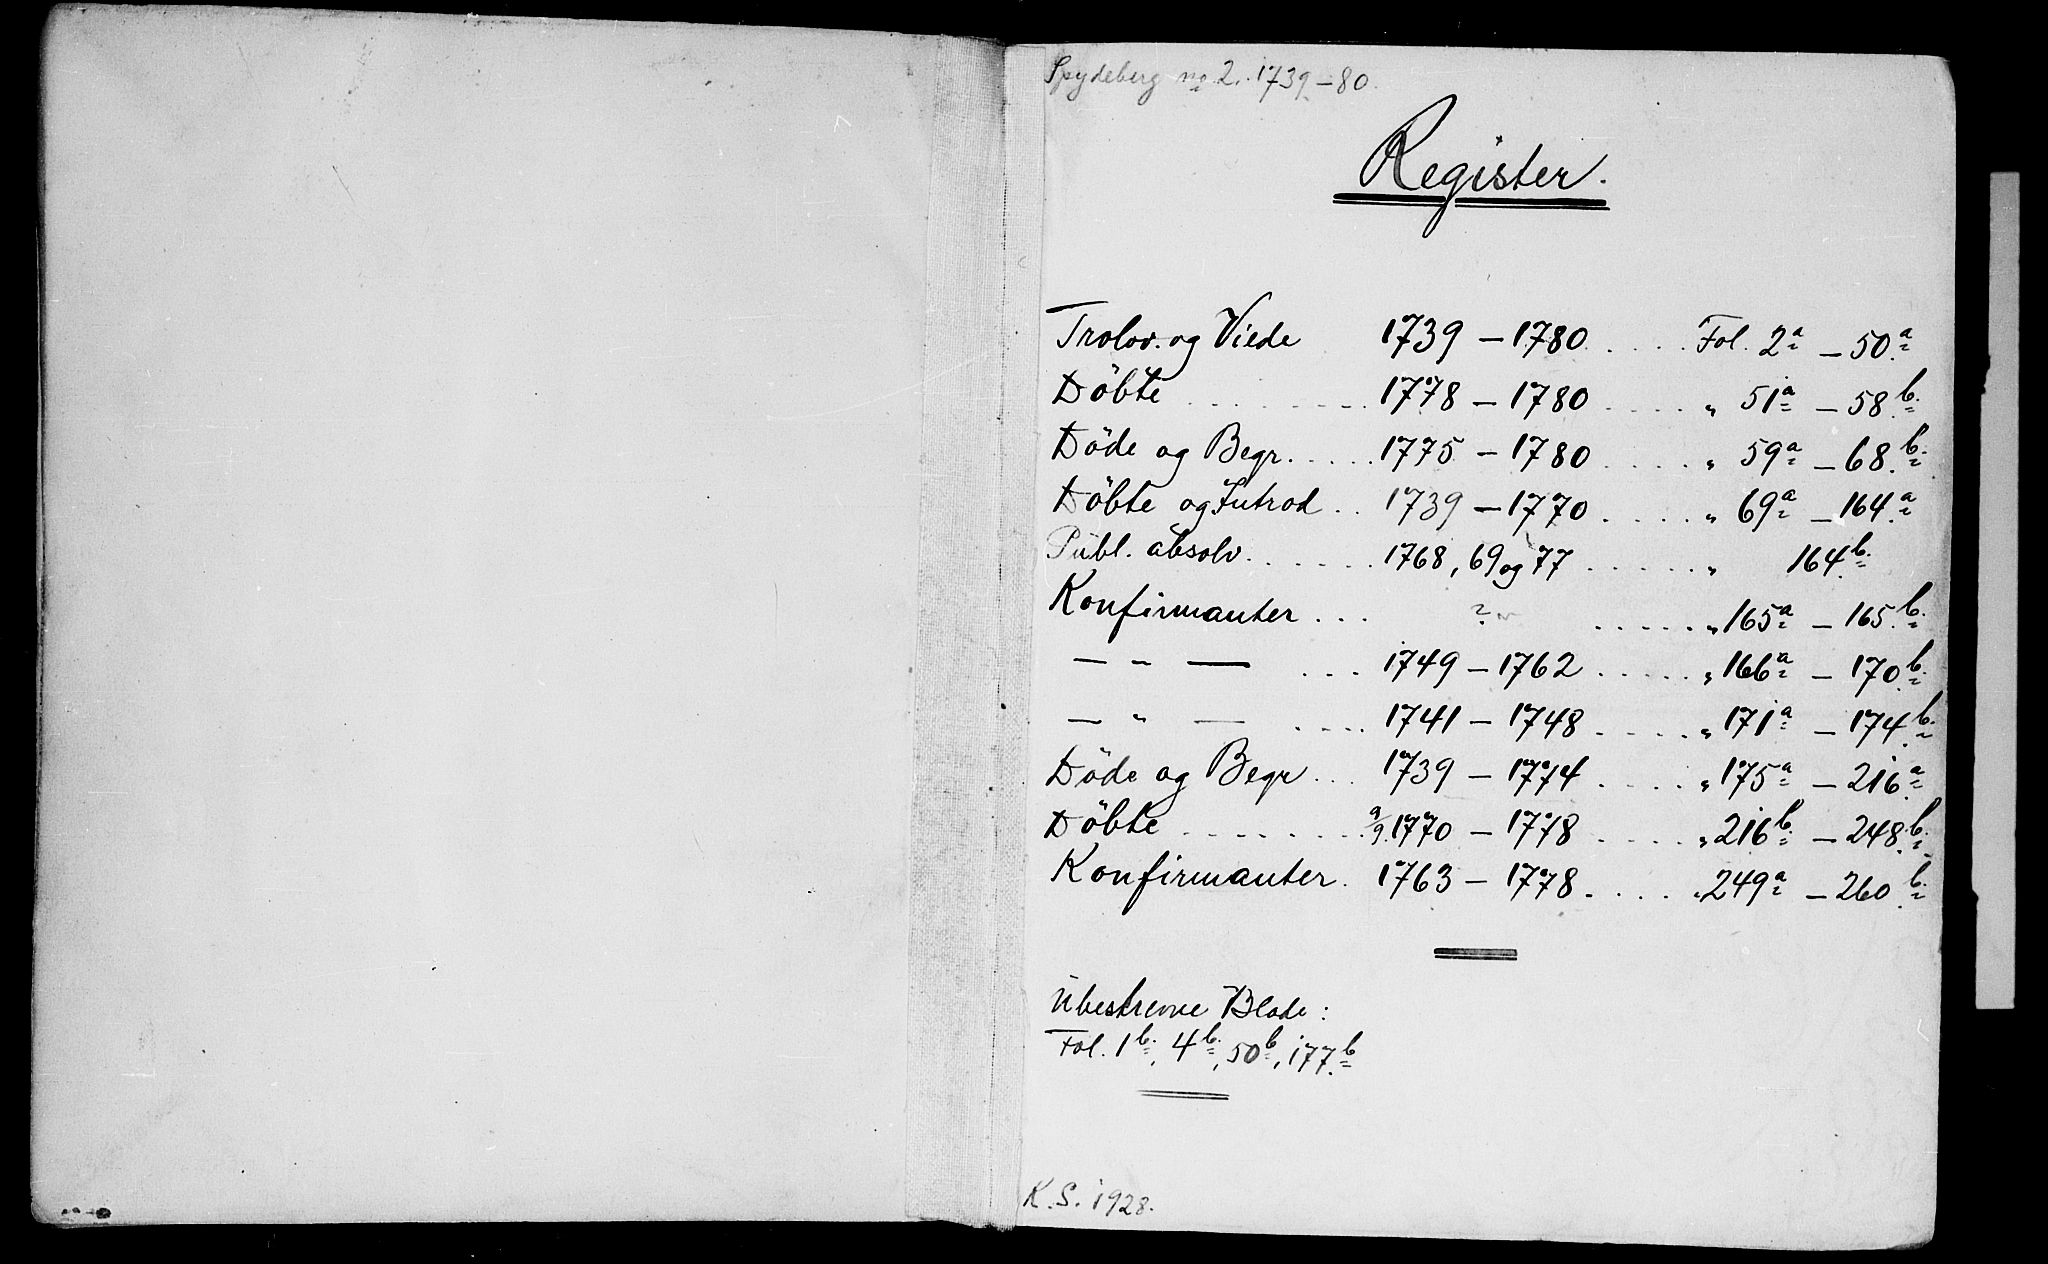 Spydeberg no 2. 1739-80.
Register.
Trolov. og Viede 1739 - 1780 ..... Fol. 2a - 50a
Döbte ........ 1778 - 1780 ..... " 51a - 58b.
Döde og Begr. ..... 1775 - 1780 ..... " 59a - 68b.
Döbte og Introd .. 1739 - 1770 ..... " 69a - 164a
Publ. absolv. ...... 1768, 69 og 77 ...... " 164b.
Konfirmanter ... ? ..... " 165a - 165b.
— " — ... 1749 - 1762 ..... " 166a - 170b.
— " — .... 1741 - 1748 ..... " 171a - 174b.
Döde og Begr ... 1739 - 1774 ..... " 175a - 216a
Döbte ........ 9/9. 1770 - 1778 ..... " 216b. - 248b.
Konfirmanter. 1763 - 1778 .... " 249a - 260b.
Ubeskrevne Blade:
Fol. 1b., 4b., 50b, 177b
K.S. 1928.